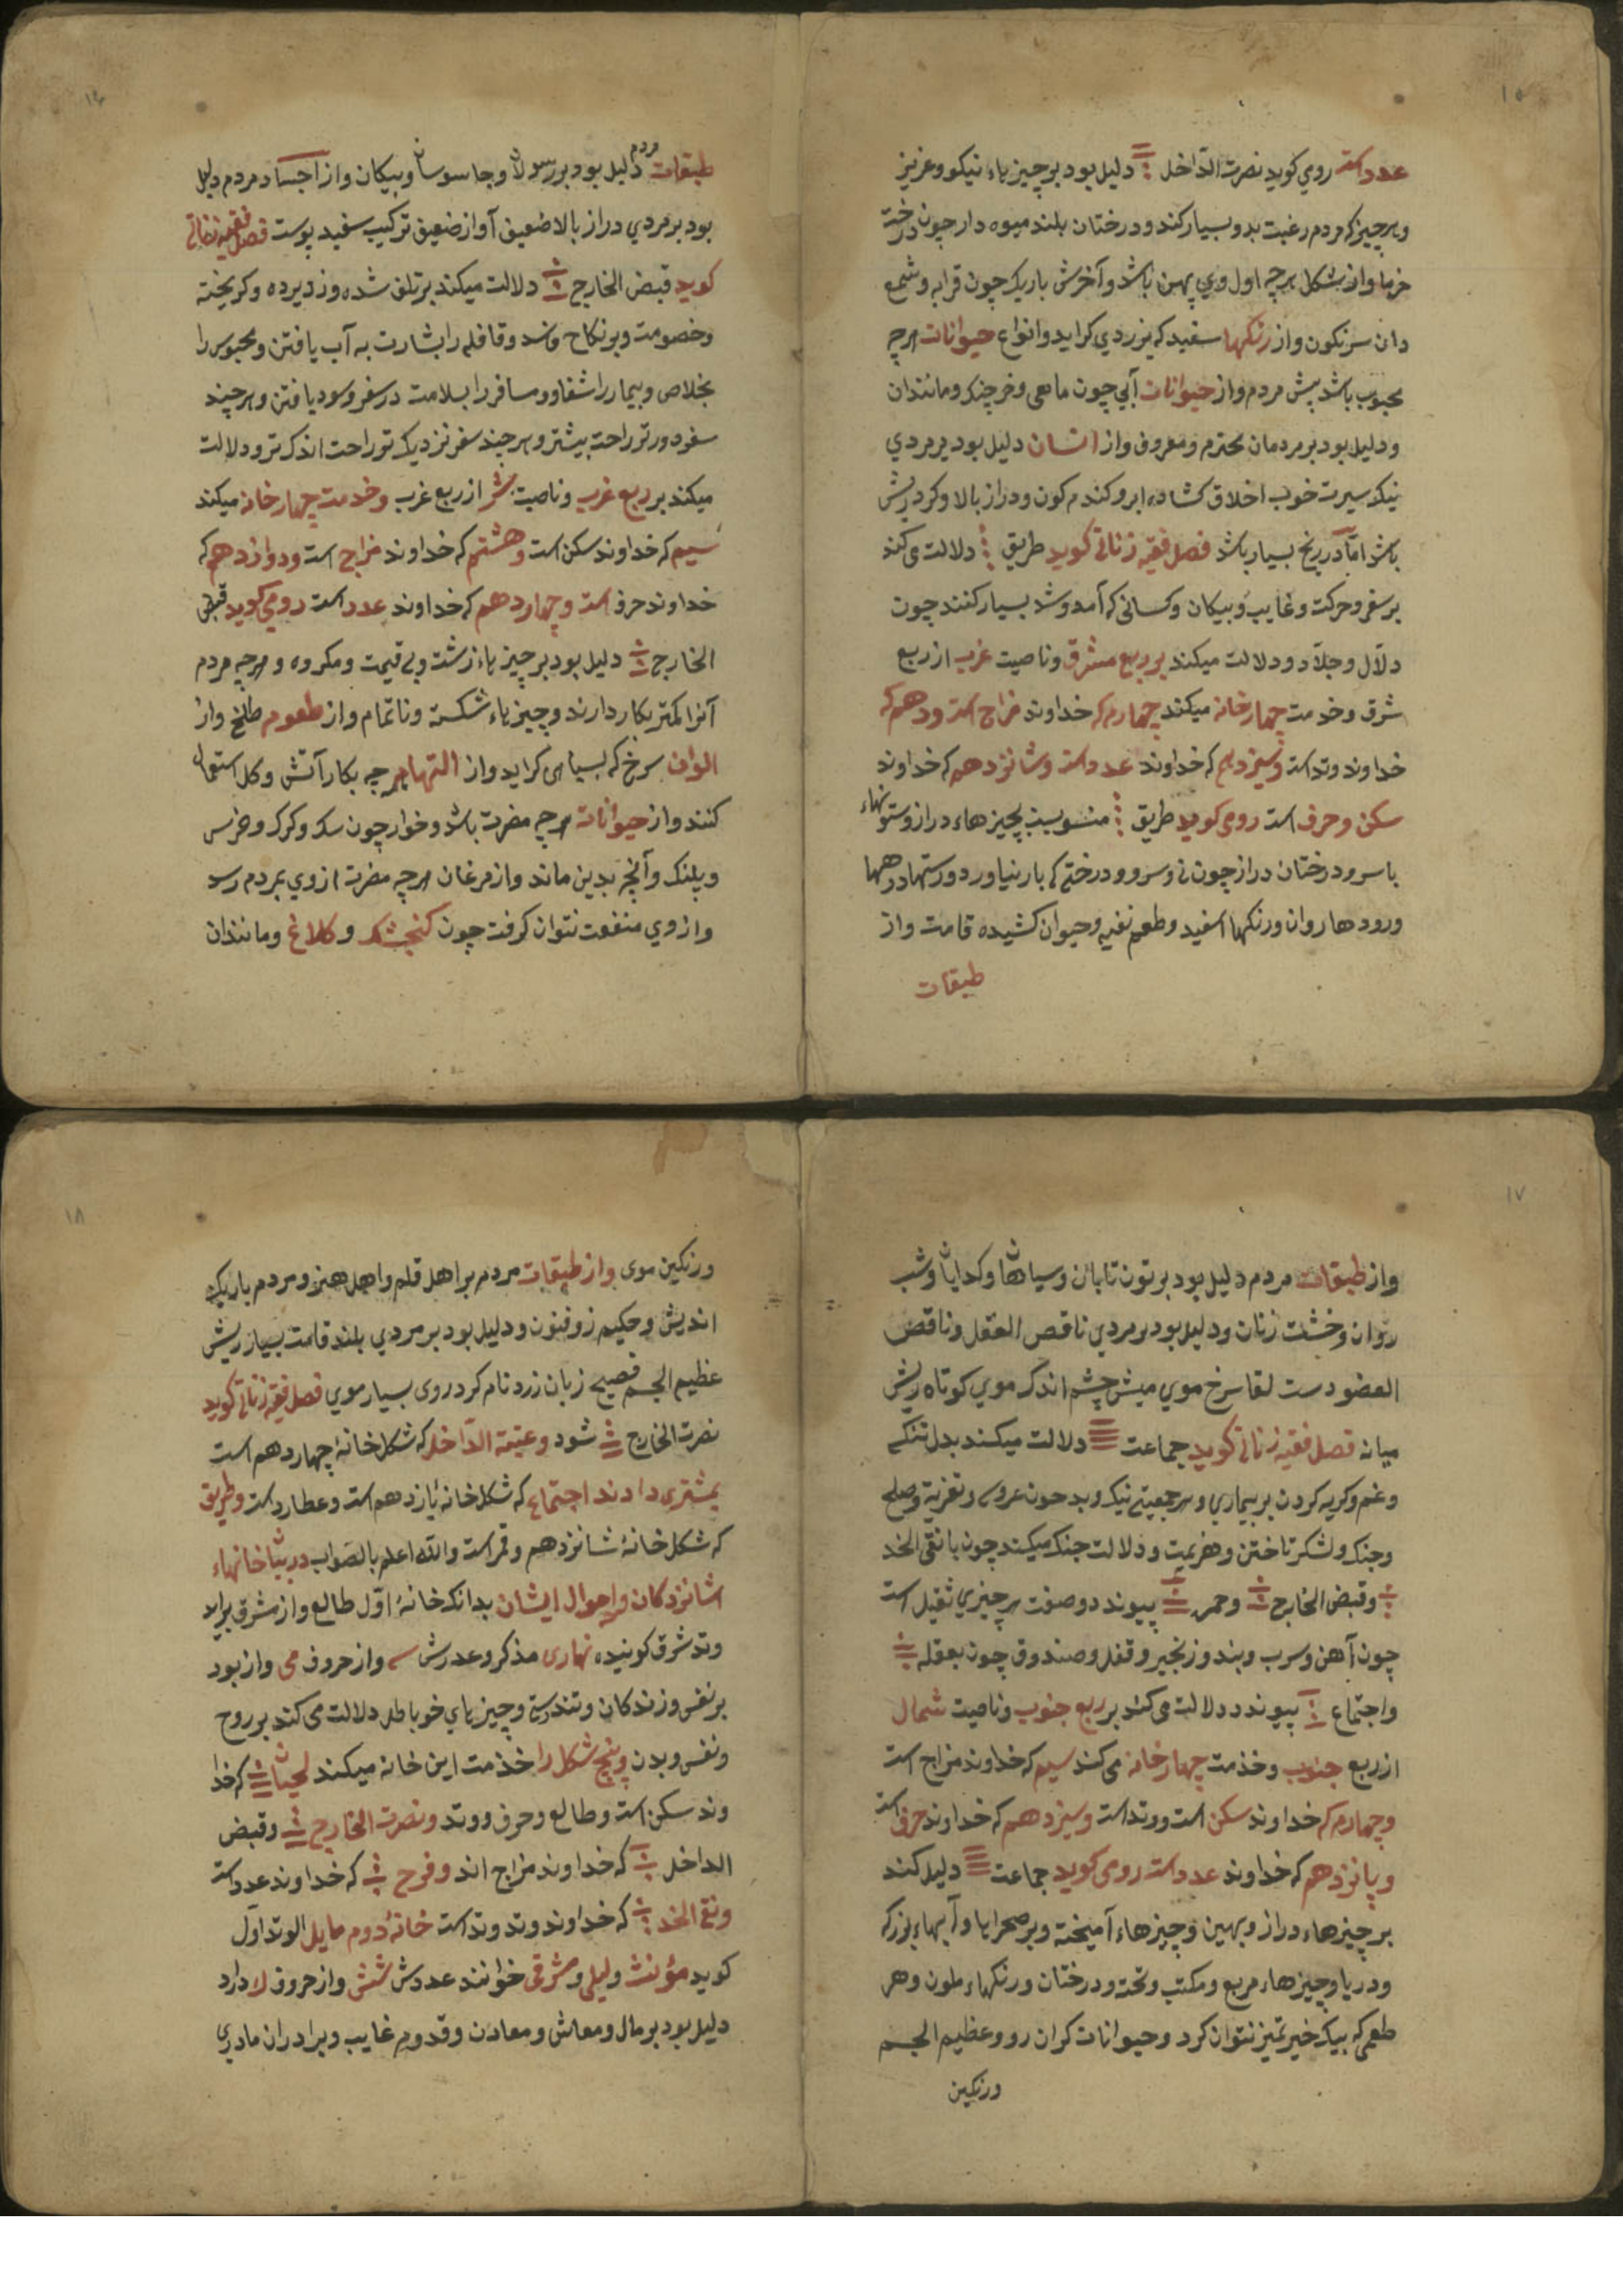 ۱۵
عدد است روي كويد نصرت الدّاخل دليل بود بر چيز ياء نيكو و عزيز
و هر چيز كه مردم رغبت بدو بسيار كند و درختان بلند ميوه دار چون درخت
خرما و از شكل هرچه اول وي پهن باشد و آخرش باريك چون قرابه و شمع
دان سرنكون و از رنكها سفيد كه بزردي كرايد و انواع حيوانات هرچه
محبوب باشد پيش مردم و از حيوانات آبي چون ماهى و خرچنك و مانندان
و دليل بود بر مردمان محترم و معروف و از انسان دليل بود بر مردي
نيك سيرت خوب اخلاق كشاده ابرو كندم كون و دراز بالا و كرد ريش
باشد امّا در رنج بسيار باشد فصل فقيه زناتى كويد طريق دلالت مى كند
بر سفر و حركت و غايب و پيكان و كسانى كه آمد و شد بسيار كنند چون
دلّال و جلّاد و دلالت ميكند بر ربع مشرق و ناصيت غرب از ربع
شرق و خدمت چهار خانه ميكند چهارم كه خداوند مزاج است و دهم كه
خداوند وتد است و سيزدهم كه خداوند عدد است و شانزدهم كه خداوند
سكن و حرف است رومى كويد طريق منسوبست بچيزهاء دراز و ستونهاء
با سر و درختان دراز چون نى و سرو و درختى كه بار نياورد و رستهاء درهمها
و رودها روان و رنكها اسفيد و طعم نفيه و حيوان كشيده قامت و از
طبقات
۱۶
طبقات مردم دليل بود بر رسولان و جاسوسان و پيكان و از اجساد مردم دليل
بود بر مردي دراز بالا ضعيف آواز ضعيف تركيب سفيد پوست فصل فقيه زناتى
كويد قبض الخارج دلالت ميكند بر تلف شده و دزد برده و كريخته
و خصومت و بر نكاح فاسد و قافله را بشارت به آب يافتن و محبوس را
بخلاص و بيمار را شفا و مسافر را بسلامت در سفر و سود يافتن و هرچند
سفر دورتر راحت بيشتر و هر چند سفر نزديك تر راحت اندك تر و دلالت
ميكند بر ربع غرب و ناصيت شرق از ربع غرب و خدمت چهار خانه ميكند
سيم كه خداوند سكن است و هشتم كه خداوند مزاج است و دوازدهم كه
خداوند حرف است و چهاردهم كه خداوند عدد است رومى كويد قبض
الخارج دليل بود بر چيز ياء زشت و بى قيمت و مكروه و هرچه مردم
آنرا كمتر بكار دارند و چيز ياء شكسته و ناتمام و از طعوم طلخ و از
الوان سرخ كه بسياهى كرايد و از التها هرچه بكار آتش و كل استعمال
كنند و از حيوانات هرچه مضرت باشد و خوار چون سك و كرك و خرس
و پلنك و آنچه بدين ماند و از مرغان هرچه مضرت از وي بمردم رسد
و از وي منفعت نتوان كرفت چون كنجشك و كلاغ و مانندان
۱۷
و از طبقات مردم دليل بود بر تون تابان و سياهان و كدايان و شب
روان و خشت زنان و دليل بود بر مردي ناقص العقل و ناقص
العضو دست لقا سرخ موي ميش چشم اندك موي كوتاه ريش
ميانه فصل فقيه زناتى كويد جماعت دلالت ميكند بدل تنكى
و غم و كريه كردن بر بيماري و هر جمعيتى نيك و بد چون عروسى و تعزيت و صلح
و جنك و لشكر تاختن و هزيمت و دلالت جنك ميكند چون با نقى الخد
و قبض الخارج و حمره پيوندد و صفت هر چيزي ثقيل است
چون آهن و سرب و بند و زنجير و قفل و صندوق چون بعقله
و اجتماع پيوندد دلالت مى كند بر ربع جنوب و ناصيت شمال
از ربع جنوب و خدمت چهار خانه مى كند سيم كه خداوند مزاج است
و چهارم كه خداوند سكن است و وتد است و سيزدهم كه خداوند حرف است
و پانزدهم كه خداوند عدد است رومى كويد جماعت دليل كند
بر چيزهاء دراز و پهين و چيزهاء آميخته و بر صحرايا و آبهاء بزرك
و دريا و چيزهاء مربع و مكتب و تخته و درختان و رنكهاء ملون و هر
طعمى كه بيك خير تميز نتوان كرد و حيوانات كران رو و عظيم الجسم
ورنكين
۱۸
ورنكين موى و از طبقات مردم بر اهل قلم و اهل هنر و مردم باريك
انديش و حكيم زوفنون و دليل بود بر مردي بلند قامت بسيار ريش
عظيم الجسم فصيح زبان زرد نام كرد روى بسيار موي فصل فقيه زناتى كويد
نصرت الخارج شود و عتبة الدّاخل كه شكل خانهٔ چهاردهم است
بمشترى دادند اجتماع كه شكل خانهٔ يازدهم است و عطارد است و طريق
كه شكل خانهٔ شانزدهم و قمر است واللّه اعلم بالصّواب در بيان خانهاء
شانزدكان و احوال ايشان بدانك خانهٔ اوّل طالع و از مشرق برايد
وتد شرق كويند نهارى مذكر و عددش سه و از حروف مى و از بود
بر نفس و زندكان و تندرستى و چيز ياي خوباطر دلالت مى كند بر روح
و نفس و بدن و پنج شكل را خذمت اين خانه ميكند لحيان كه خدا
وند سكن است و طالع و حرف و وتد و نصرت الخارج و قبض
الداخل كه خداوند مزاج اند و فرح كه خداوند عدد است
و نقى الخد كه خداوند وتد وتد است خانهٔ دوم مايل الوتد اوّل
كويد مؤنث و ليلى و مشرقى خوانند عددش شش و از حروف لا دارد
دليل بود بر مال و معاش و معادن و قدوم غايب و برادران مادري